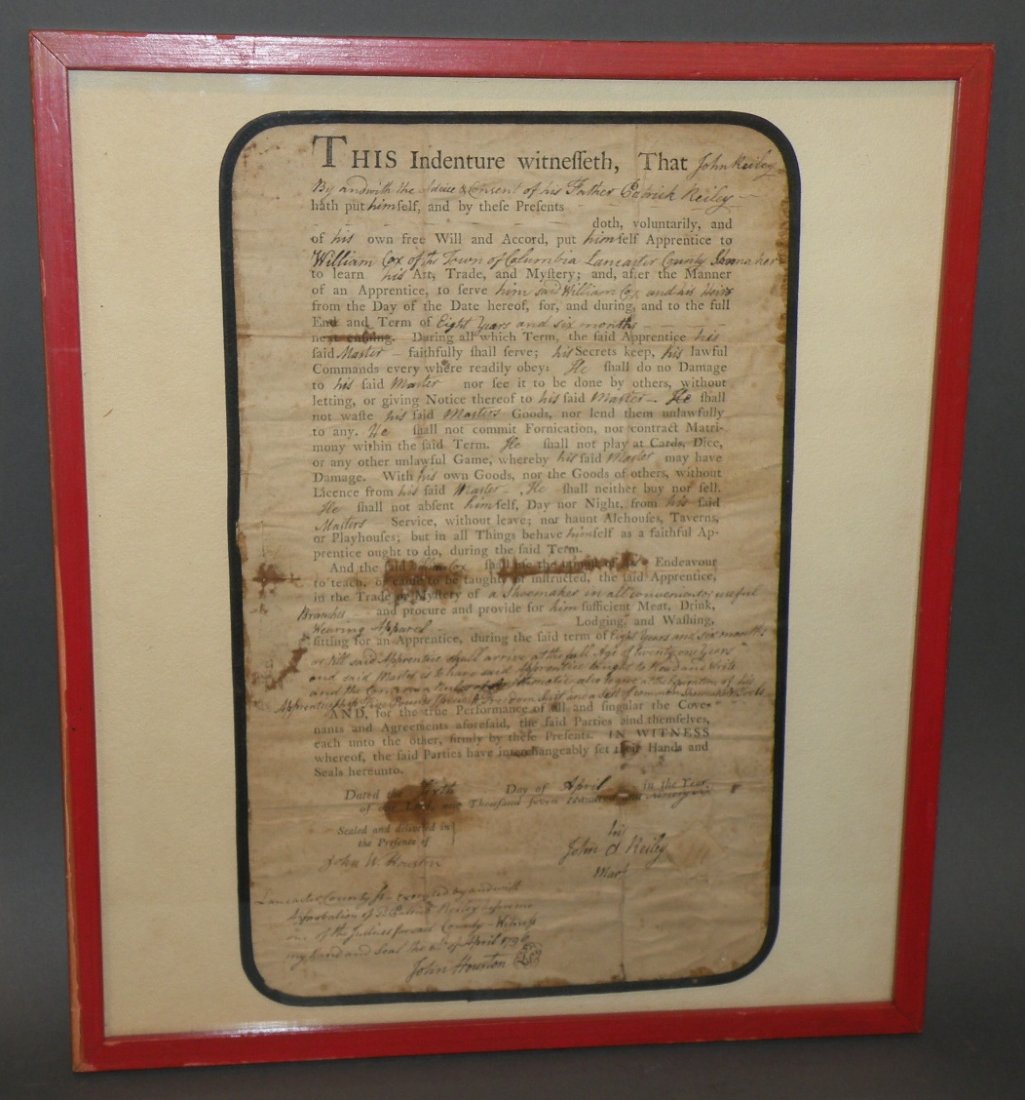 THIS Indenture witneſſeth, That John Reiley
By and with the Advice & Consent of his Father Patrick Reiley
hath put himself, and by theſe Preſents
doth, voluntarily, and
of his own free Will and Accord, put himself Apprentice to
William Cox of the Town of Columbia Lancaster County Shomaker
to learn his Art, Trade, and Myſtery; and, after the Manner
of an Apprentice, to ſerve him said William Cox and his Heirs
from the Day of the Date hereof, for, and during, and to the full
End and Term of Eight Years and six months
next enſuing. During all which Term, the ſaid Apprentice his
ſaid Master faithfully ſhall ſerve; his Secrets keep, his lawful
Commands every where readily obey: He ſhall do no Damage
to his ſaid Master nor ſee it to be done by others, without
letting, or giving Notice thereof to his ſaid Master He ſhall
not waſte his ſaid Masters Goods, nor lend them unlawfully
to any. He ſhall not commit Fornication, nor contract Matri-
mony within the ſaid Term. He ſhall not play at Cards, Dice,
or any other unlawful Game, whereby his ſaid Master may have
Damage. With his own Goods, nor the Goods of others, without
Licence from his ſaid Master He ſhall neither buy nor ſell.
He ſhall not abſent himself, Day nor Night, from his ſaid
Masters Service, without leave; nor haunt Alehouſes, Taverns,
or Playhouſes; but in all Things behave himself as a faithful Ap-
prentice ought to do, during the ſaid Term.
And the ſaid William Cox ſhall uſe the utmoſt of his Endeavour
to teach, or cauſe to be taught or inſtructed, the ſaid Apprentice,
in the Trade or Myſtery of a Shoemaker in all conveniants; useful
Branches and procure and provide for him ſufficient Meat, Drink,
Wearing Apparel Lodging, and Waſhing,
fitting for an Apprentice, during the ſaid term of Eight Years and six months
or till said Apprentice shall arrive at the full Age of twenty one Years
and said Master is to have said Apprentice taught to Read and Write
and the Common Rules of Arithmatic also to give at the Expiration of his
Apprenticeship Five Pounds Freedom Suit and a Set of common Shomakers Tools
AND, for the true Performance of all and ſingular the Cove-
nants and Agreements aforeſaid, the ſaid Parties bind themſelves,
each unto the other, firmly by theſe Preſents. IN WITNESS
whereof, the ſaid Parties have interchangeably ſet their Hands and
Seals hereunto.
Dated the Day of April in the Year
of our Lord, one Thouſand ſeven Hundred and
Sealed and delivered in
the Preſence of
John W Houston
his
John Reiley
Mark
Lancaster County Ss. executed by and with
Approbation of Patrick Reiley before me
one of the Justices for said County Witness
my hand and Seal the April 1796
John Houston